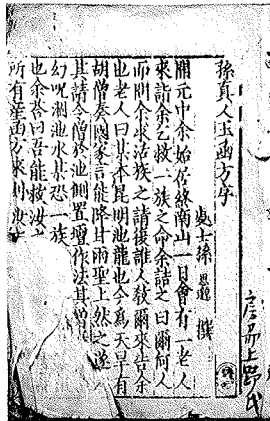 孫真人玉函方序
處士孫 思邈 撰
開元中余始居終南山一日會有一老人
來詣余乞救一族之命余詰之曰爾何人
而則余求活族之請後誰人教爾來告余
也老人曰某本昆明池龍也今為天旱有
胡僧奏國家言能降甘雨聖上然之遂
其請令僧終池側置壇作法其
幻呪涸池水某恐一族
也余答曰吾能救汝
所有